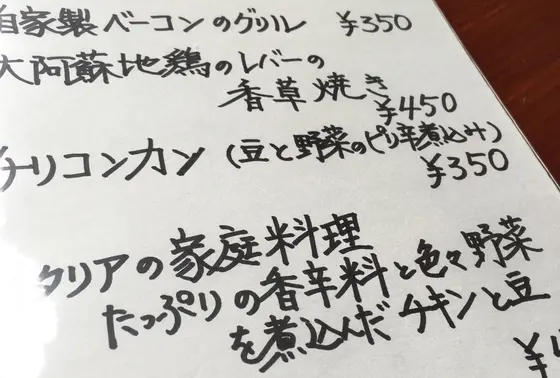 自家製ベーコンのグリル ¥350
大阿蘇地鶏のレバーの
香草焼き
¥450
チリコンカン (豆と野菜のピリ辛煮込み)
¥350
タリアの家庭料理
たっぷりの香辛料と色々野菜
を煮込んだチキンと豆
¥